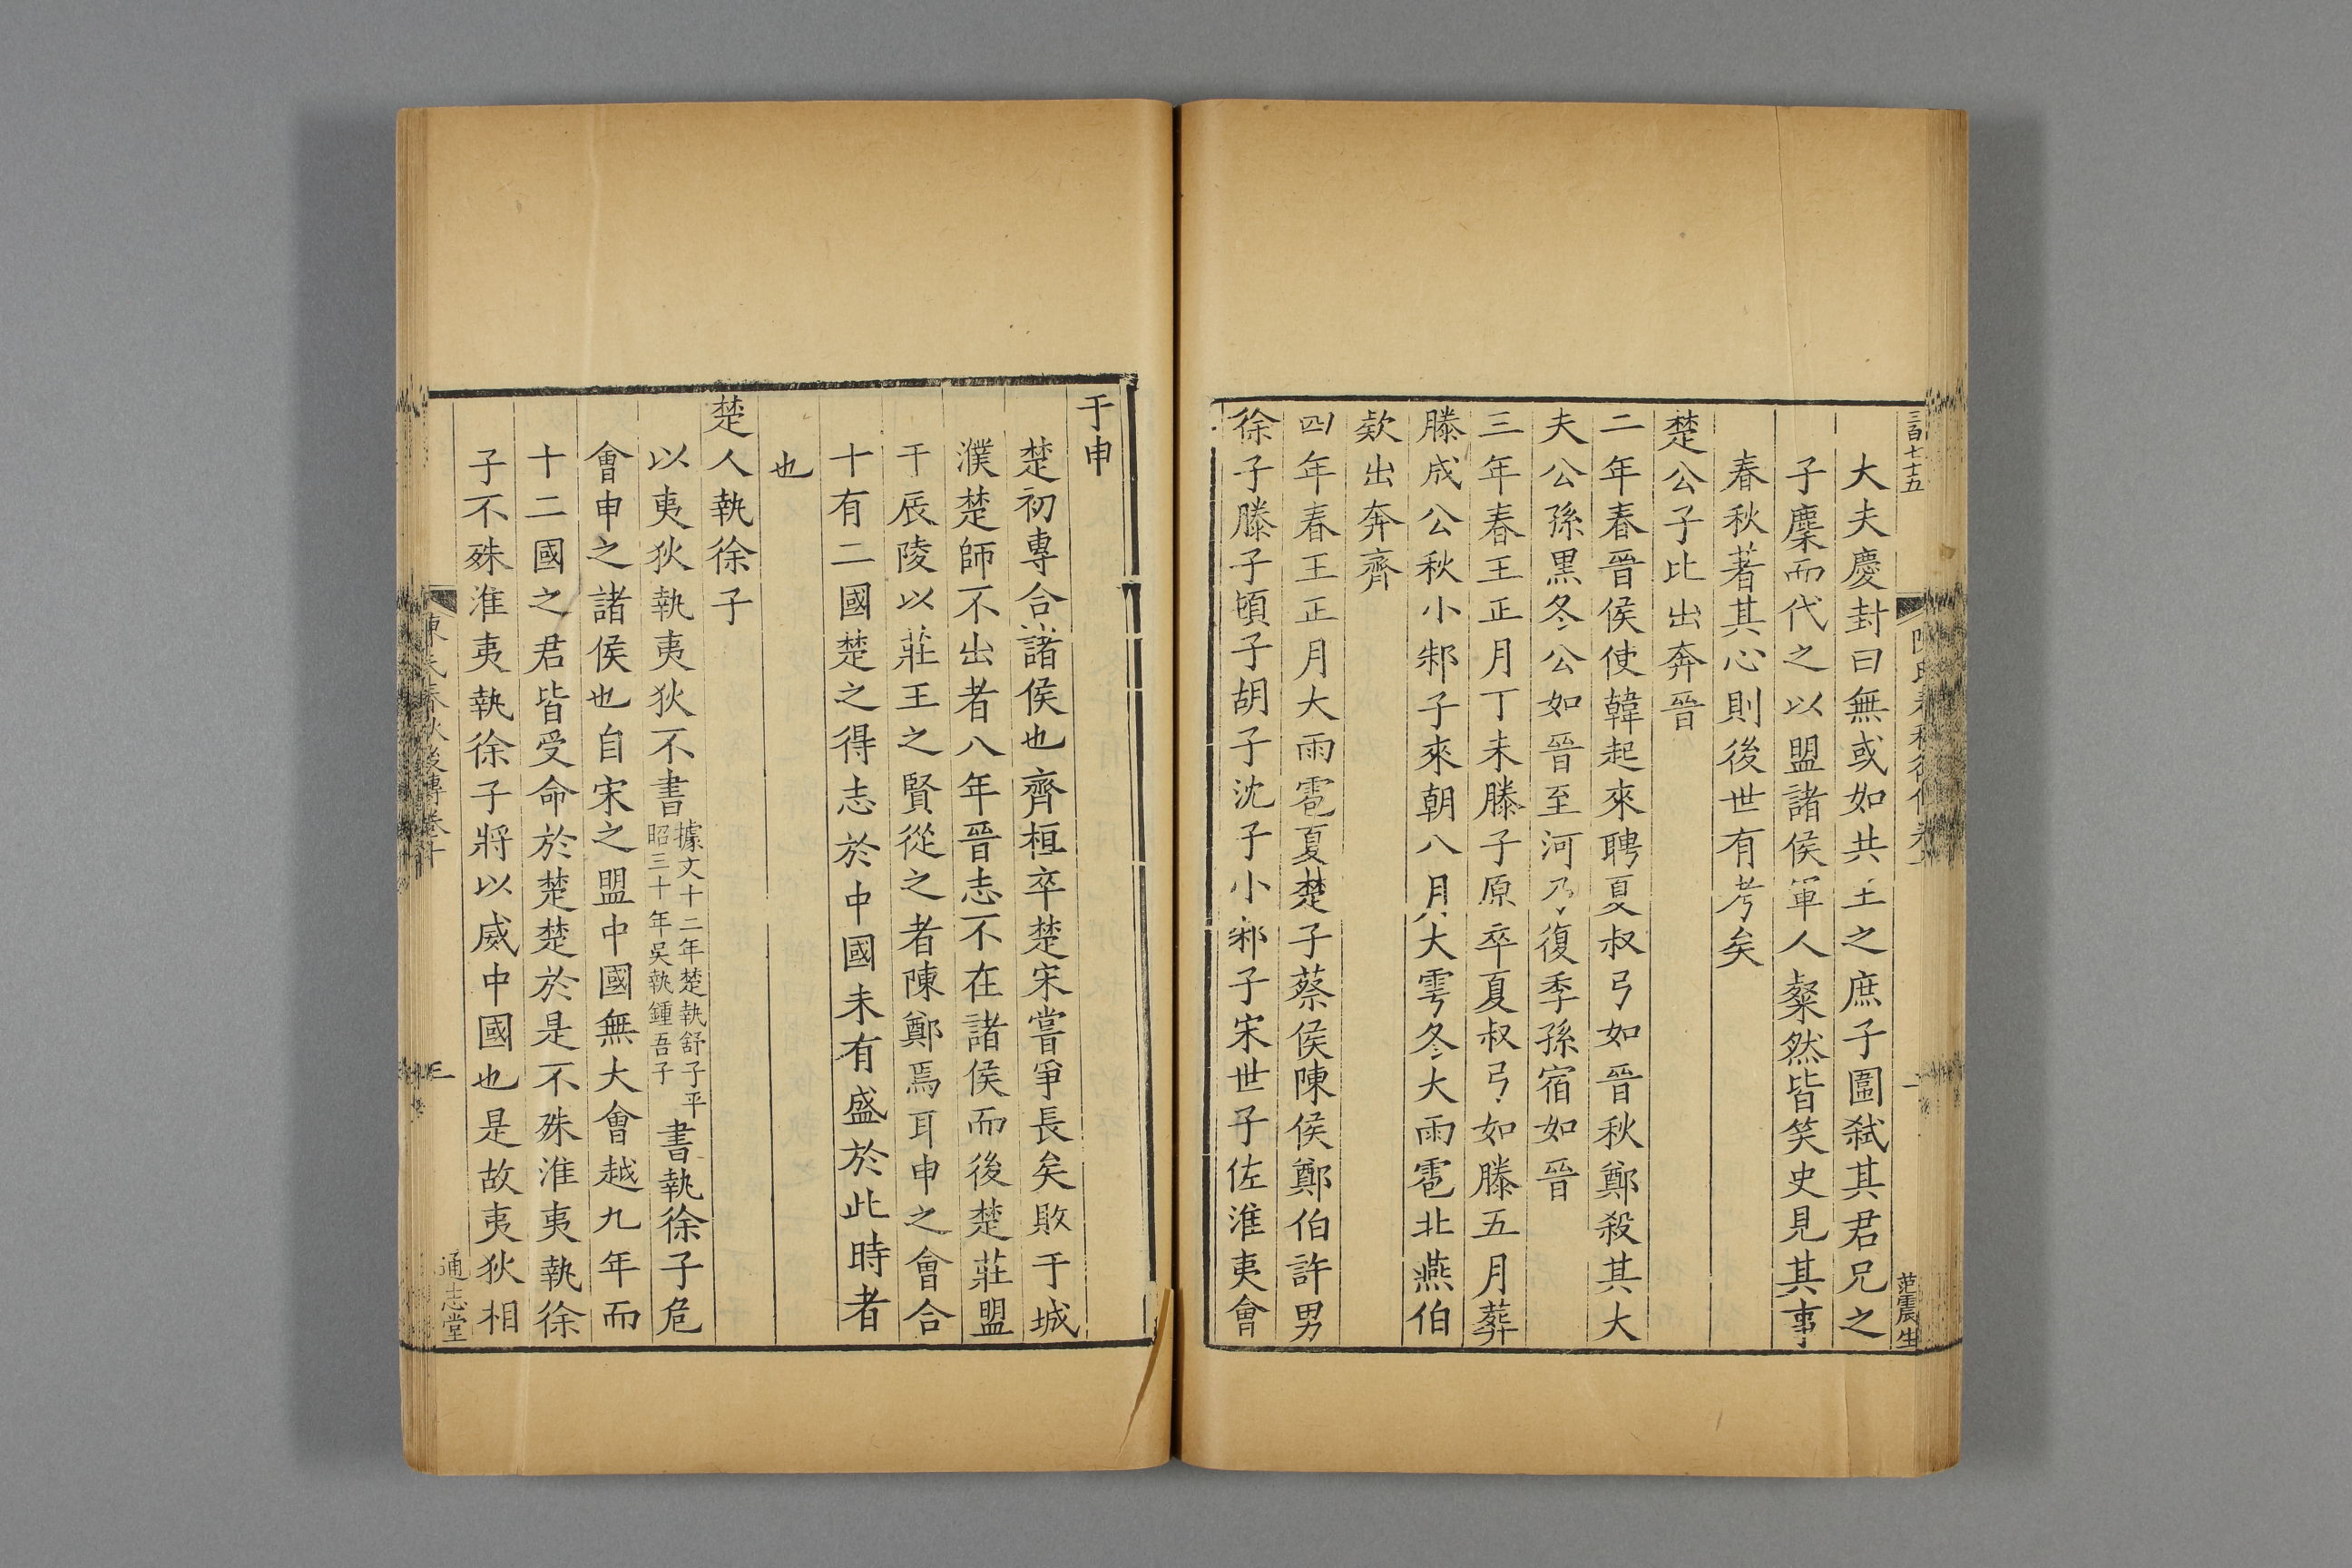 三百七十五
范震生
大夫慶封曰無或如共王之庶子圍弑其君兄之
子麇而代之以盟諸侯軍人粲然皆笑史見其事
春秋著其心則後世有考矣
楚公子比出奔晉
二年春晉侯使韓起來聘夏叔弓如晉秋鄭殺其大
夫公孫黑冬公如晉至河乃復季孫宿如晉
三年春王正月丁未滕子原卒夏叔弓如滕五月葬
滕成公秋小邾子來朝八月大雩冬大雨雹北燕伯
欵出奔齊
四年春王正月大雨雹夏楚子蔡侯陳侯鄭伯許男
徐子滕子頓子胡子沈子小邾子宋世子佐淮夷會
于申
楚初專合諸侯也齊桓卒楚宋嘗爭長矣敗于城
濮楚師不出者八年晉志不在諸侯而後楚莊盟
于辰陵以莊王之賢從之者陳鄭焉耳申之會合
十有二國楚之得志於中國未有盛於此時者
也
楚人執徐子
以夷狄執夷狄不書據文十二年楚執舒子平昭三十年吳執鍾吾子書執徐子危
會申之諸侯也自宋之盟中國無大會越九年而
十二國之君皆受命於楚楚於是不殊淮夷執徐
子不殊淮夷執徐子將以威中國也是故夷狄相
陳氏春秋後傳卷十
通志堂